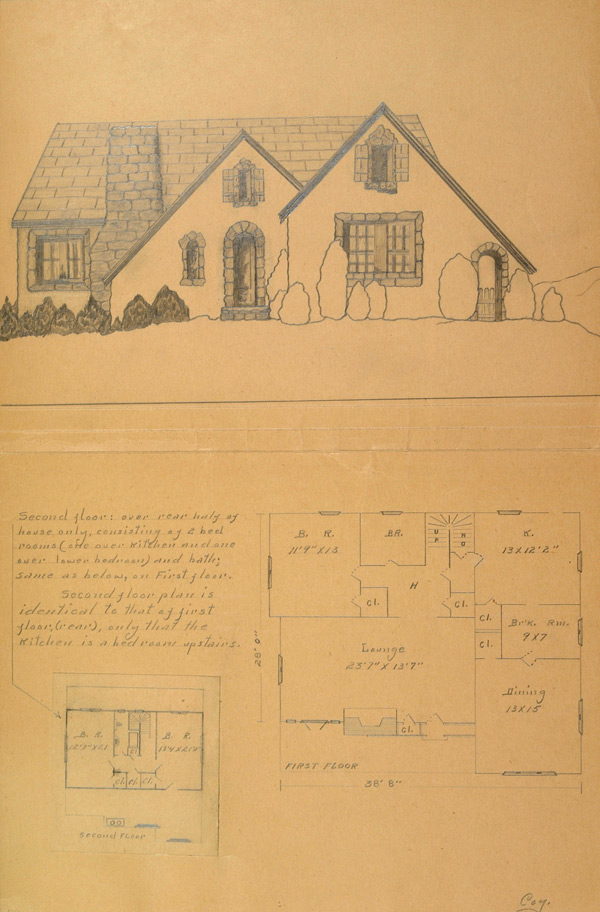 Second floor: over rear half of
house only, consisting of 2 bed
rooms (one over kitchen and one
over lower bedroom) and bath;
same as below, on First floor.
Second floor plan is
identical to that of first
floor, (rear), only that the
kitchen is a bedroom upstairs.
B. R.
11'9" X 13
BR.
UP
K.
13 X 12'2"
H
Cl.
Cl.
Cl.
Cl.
Brk. Rm.
9 X 7
Lounge
23'7" X 13'7"
Dining
13 X 15
Cl.
28' 0"
FIRST FLOOR
38' 8"
B. R.
B. R.
Cl.
Cl.
Cl.
Second Floor
Coy.